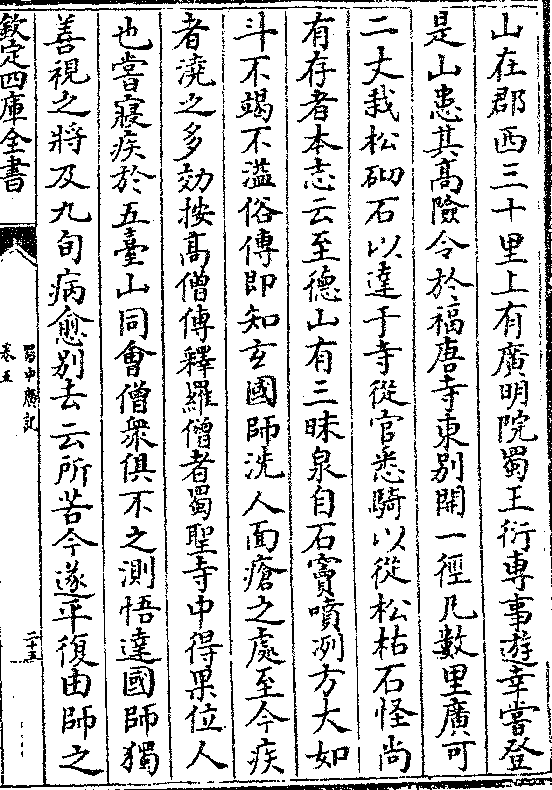 山在郡西三十里上有廣明院蜀王衍專事遊幸嘗登
是山患其髙險令於福唐寺東別開一徑凡數里廣可
二丈栽松砌石以達于寺從官悉騎以從松枯石怪尚
有存者本志云至德山有三昧泉自石竇噴冽方大如
斗不竭不溢俗傳即知玄國師洗人面瘡之處至今疾
者澆之多効按髙僧傳釋羅僧者蜀聖寺中得果位人
也嘗寢疾於五臺山同會僧衆俱不之測悟達國師獨
善視之將及九旬病愈别去云所苦今遂平復由師之
欽定四庫全書
蜀中廣記
卷五
二十五